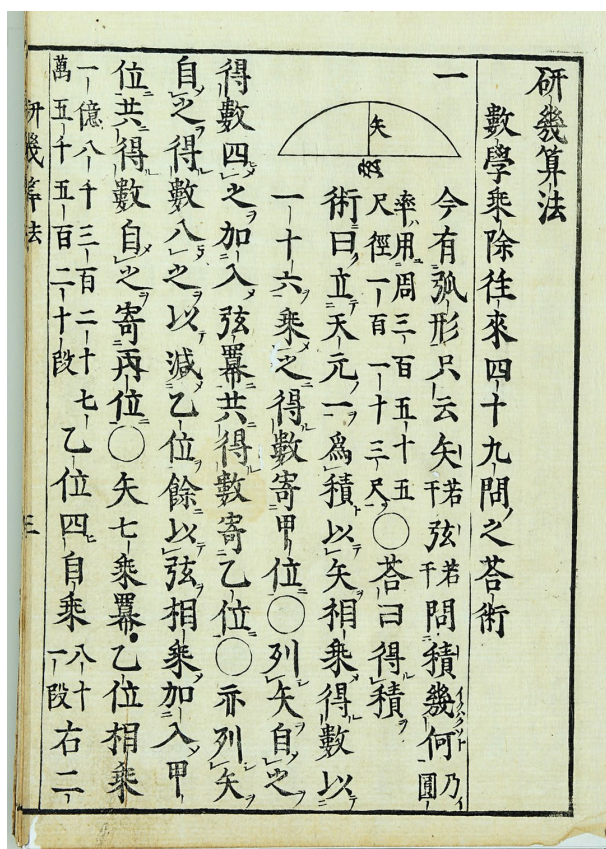 研幾算法
數學乘除往來四十九問之荅術
一
矢
弦
今有弧形只云矢若干弦若干問積幾何乃圓
率用周三百五十五
尺徑一百一十三尺○荅曰得積
術曰立天元一爲積以矢相乘得數以
一十六乘之得數寄甲位○列矢自之
得數四之加入弦冪共得數寄乙位○亦列矢
自之得數八之以減乙位餘以弦相乘加入甲
位共得數自之寄丙位○矢七乘冪乙位相乘
一億八千三百二十七
萬五千五百二十段乙位四自乘八十
一段右二
研幾算法
三